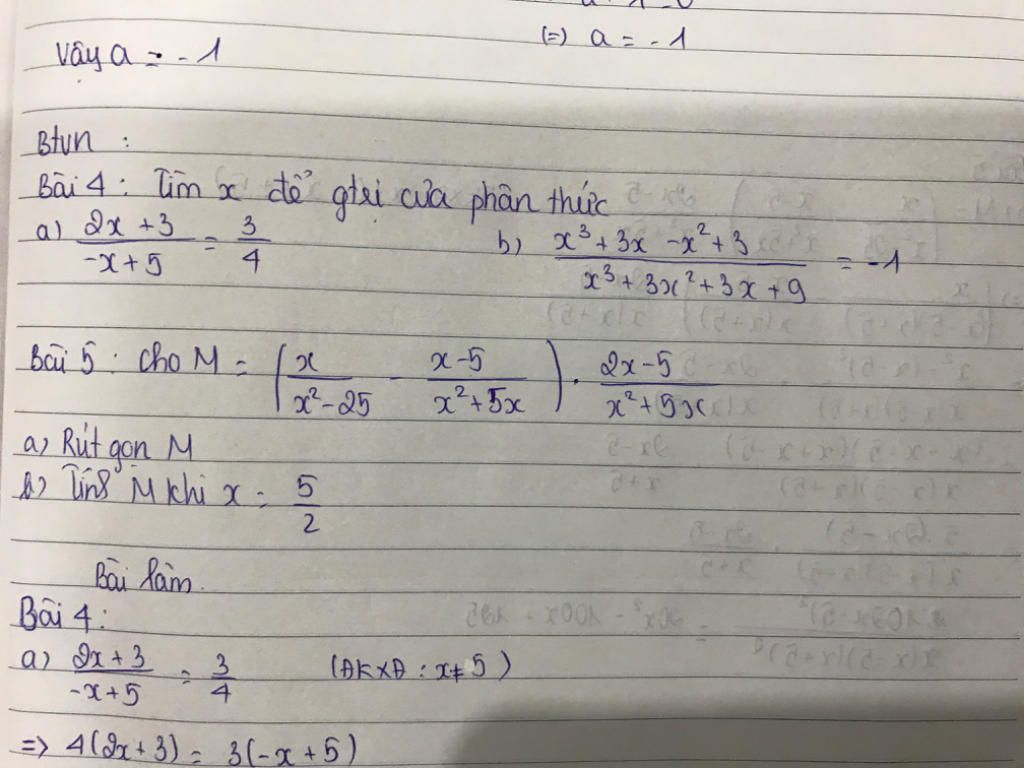 (=) a = -1
Vậy a = -1
Btvn :
Bài 4 : Tìm x để gtrị của phân thức
a) \frac{2x+3}{-x+5} = \frac{3}{4} b) \frac{x³+3x-x²+3}{x³+3x²+3x+9} = -1
Bài 5 : Cho M = (\frac{x}{x²-25} - \frac{x-5}{x²+5x}) . \frac{2x-5}{x²+5x}
a) Rút gọn M
b) Tính M khi x = \frac{5}{2}
Bài làm.
Bài 4 :
a) \frac{2x+3}{-x+5} = \frac{3}{4} (ĐKXĐ : x≠5)
=> 4(2x+3) = 3(-x+5)